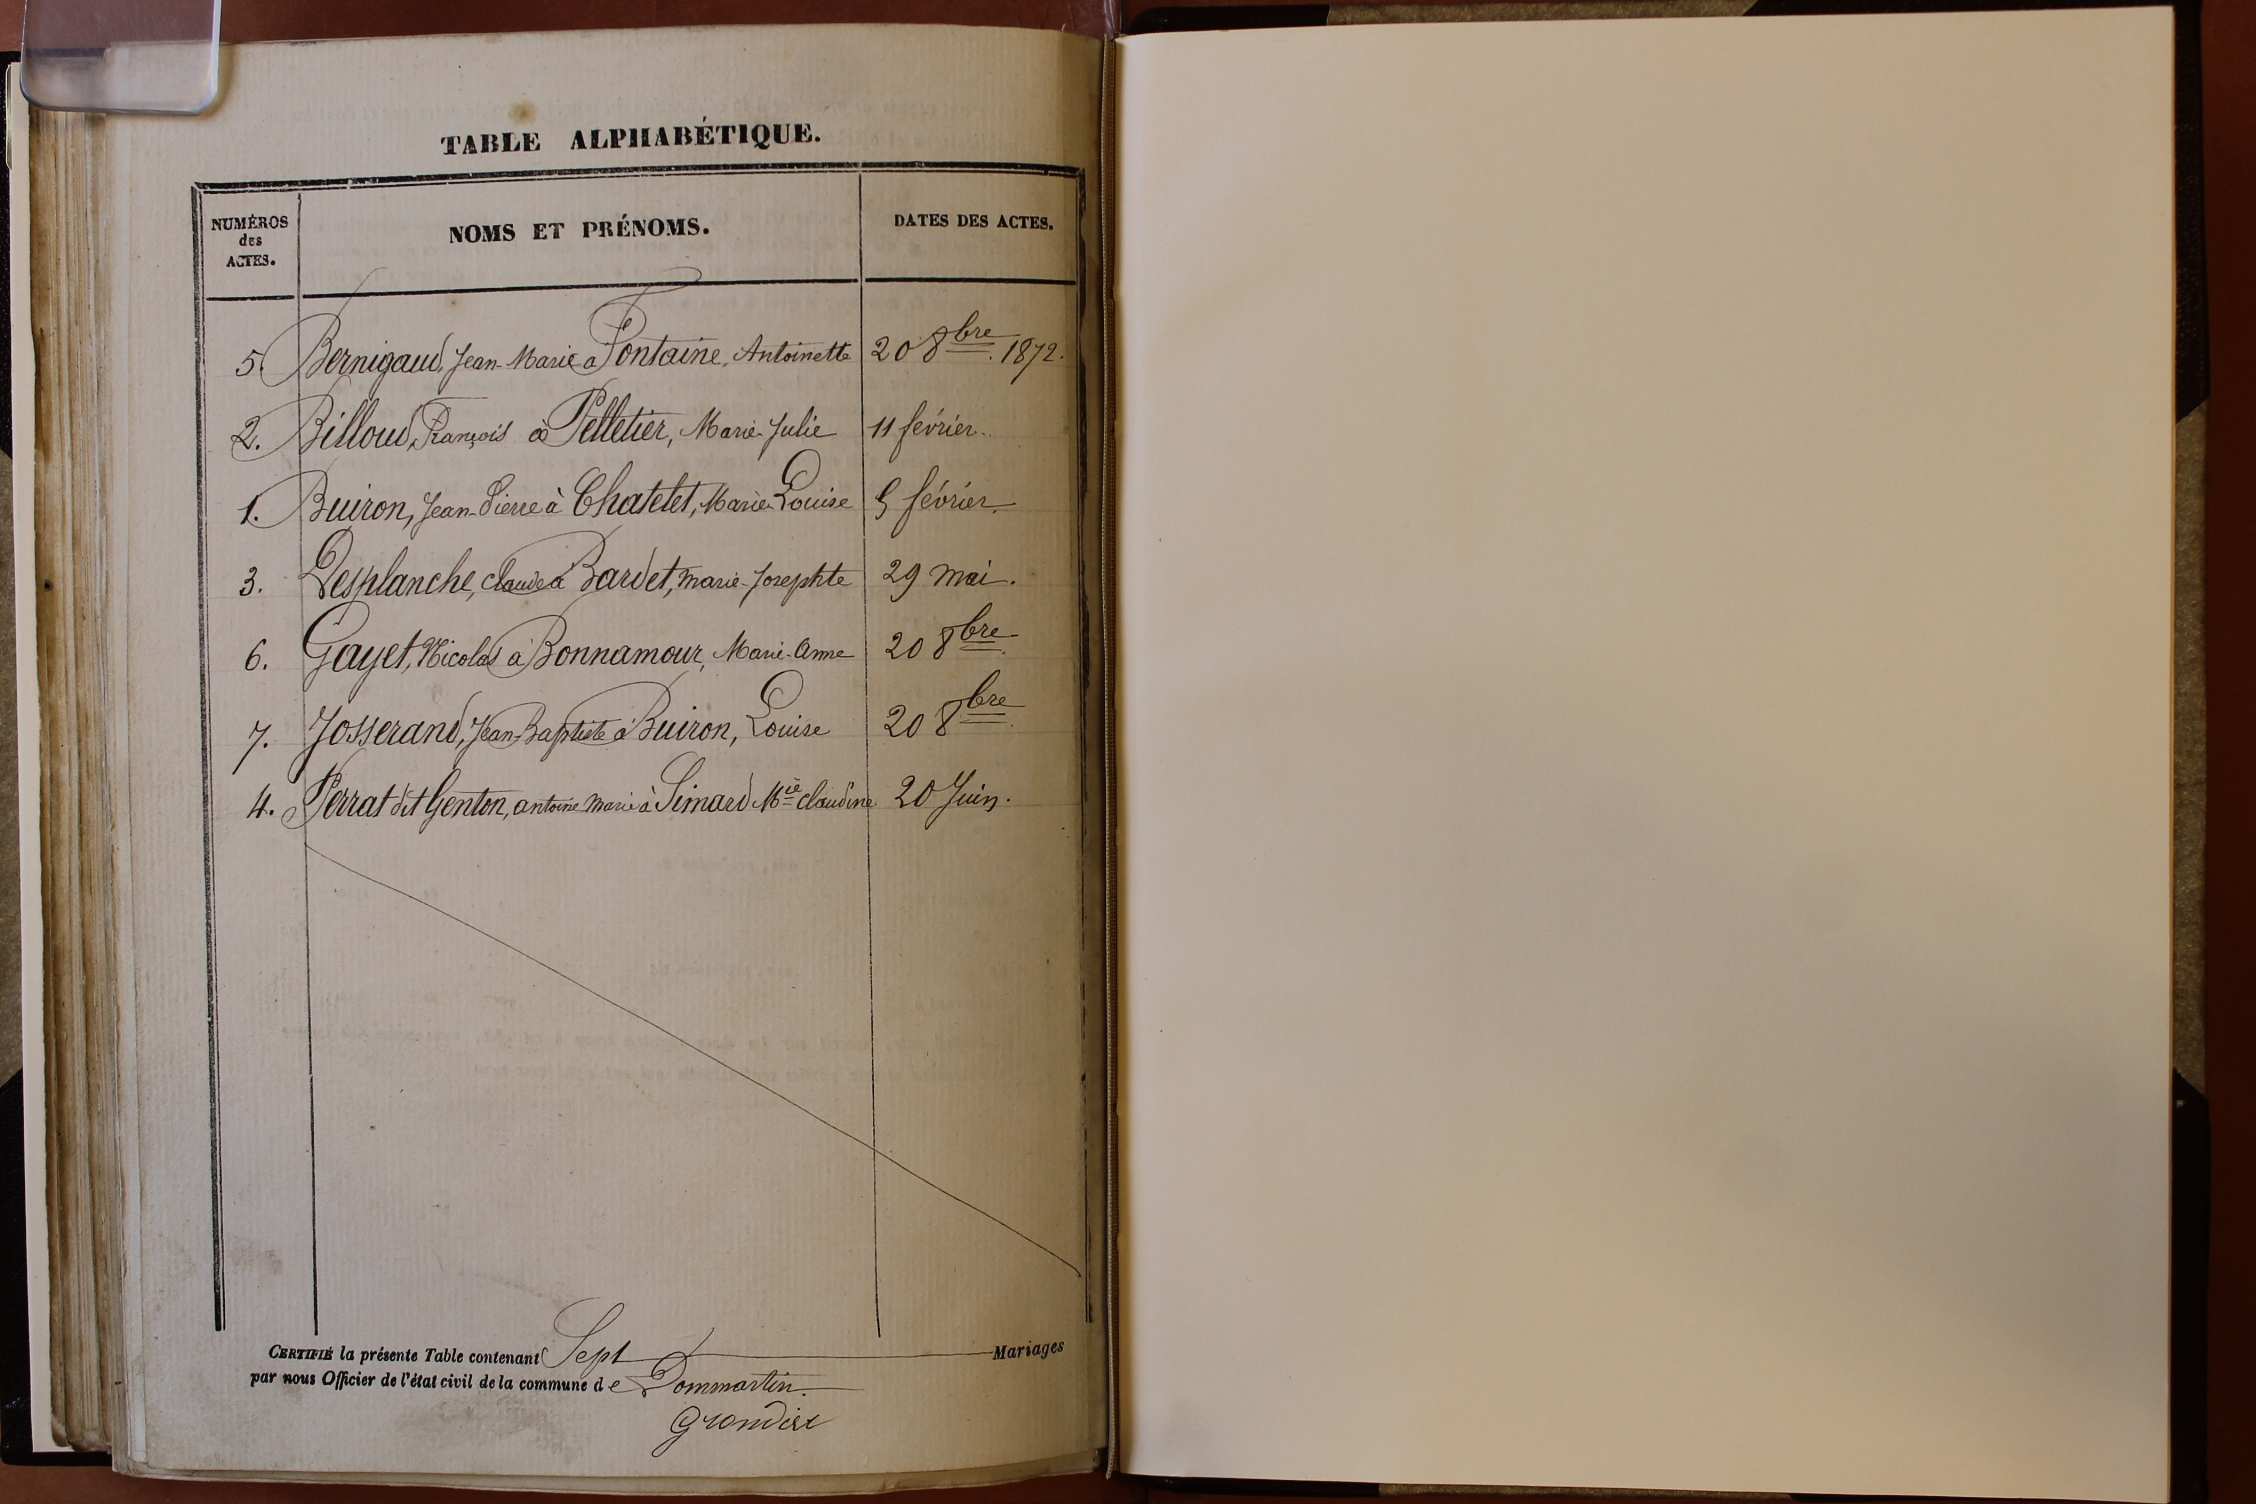 TABLE ALPHABÉTIQUE.
NUMÉROS des ACTES. NOMS ET PRÉNOMS. DATES DES ACTES.
5. Bernigaud, Jean-Marie à Fontaine, Antoinette 20 8bre. 1872.
2. Billoud, François à Pelletier, Marie-Julie 11 février.
1. Buiron, Jean-Pierre à Chatelet, Marie-Louise 5 février.
3. Desplanche, Claude à Bardet, Marie-Josephte 29 mai.
6. Gayet, Nicolas à Bonnamour, Marie-Anne 20 8bre.
7. Josserand, Jean-Baptiste à Buiron, Louise 20 8bre.
4. Perrat dit Genton, antoine marie à Simard Mie claudine 20 Juin.
CERTIFIÉ la présente Table contenant Sept Mariages
par nous Officier de l'état civil de la commune de Dommartin.